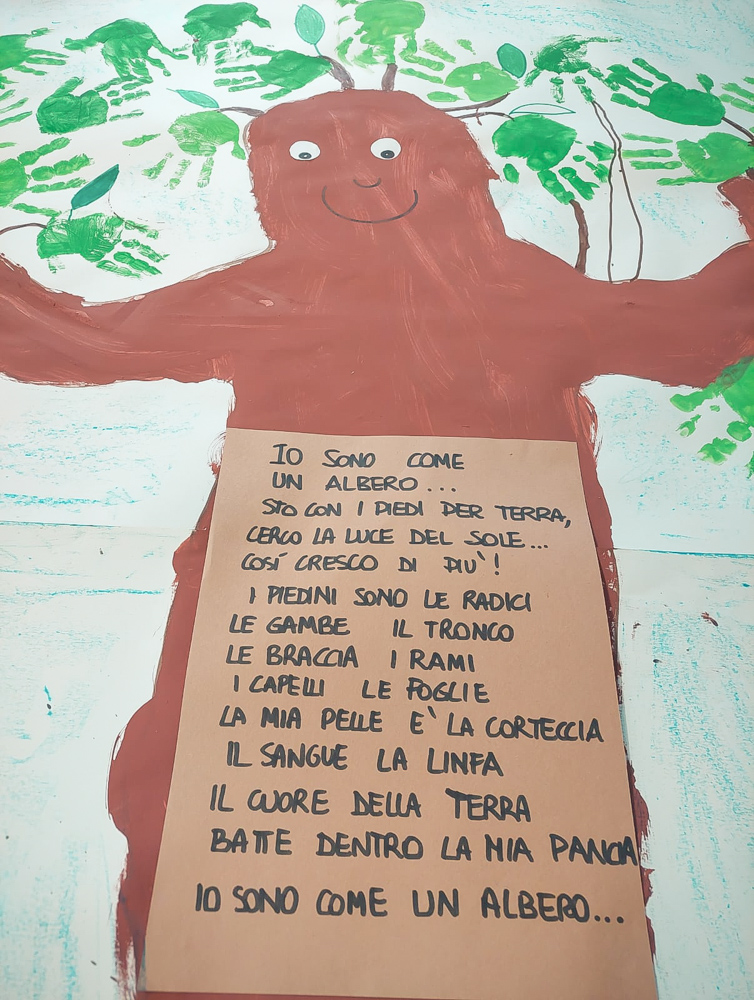 IO SONO COME
UN ALBERO...
STO CON I PIEDI PER TERRA,
CERCO LA LUCE DEL SOLE...
COSÍ CRESCO DI PIU'!
I PIEDINI SONO LE RADICI
LE GAMBE IL TRONCO
LE BRACCIA I RAMI
I CAPELLI LE FOGLIE
LA MIA PELLE E' LA CORTECCIA
IL SANGUE LA LINFA
IL CUORE DELLA TERRA
BATTE DENTRO LA MIA PANCIA
IO SONO COME UN ALBERO...